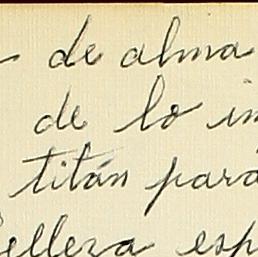 de alma
de lo
titán para
elleza